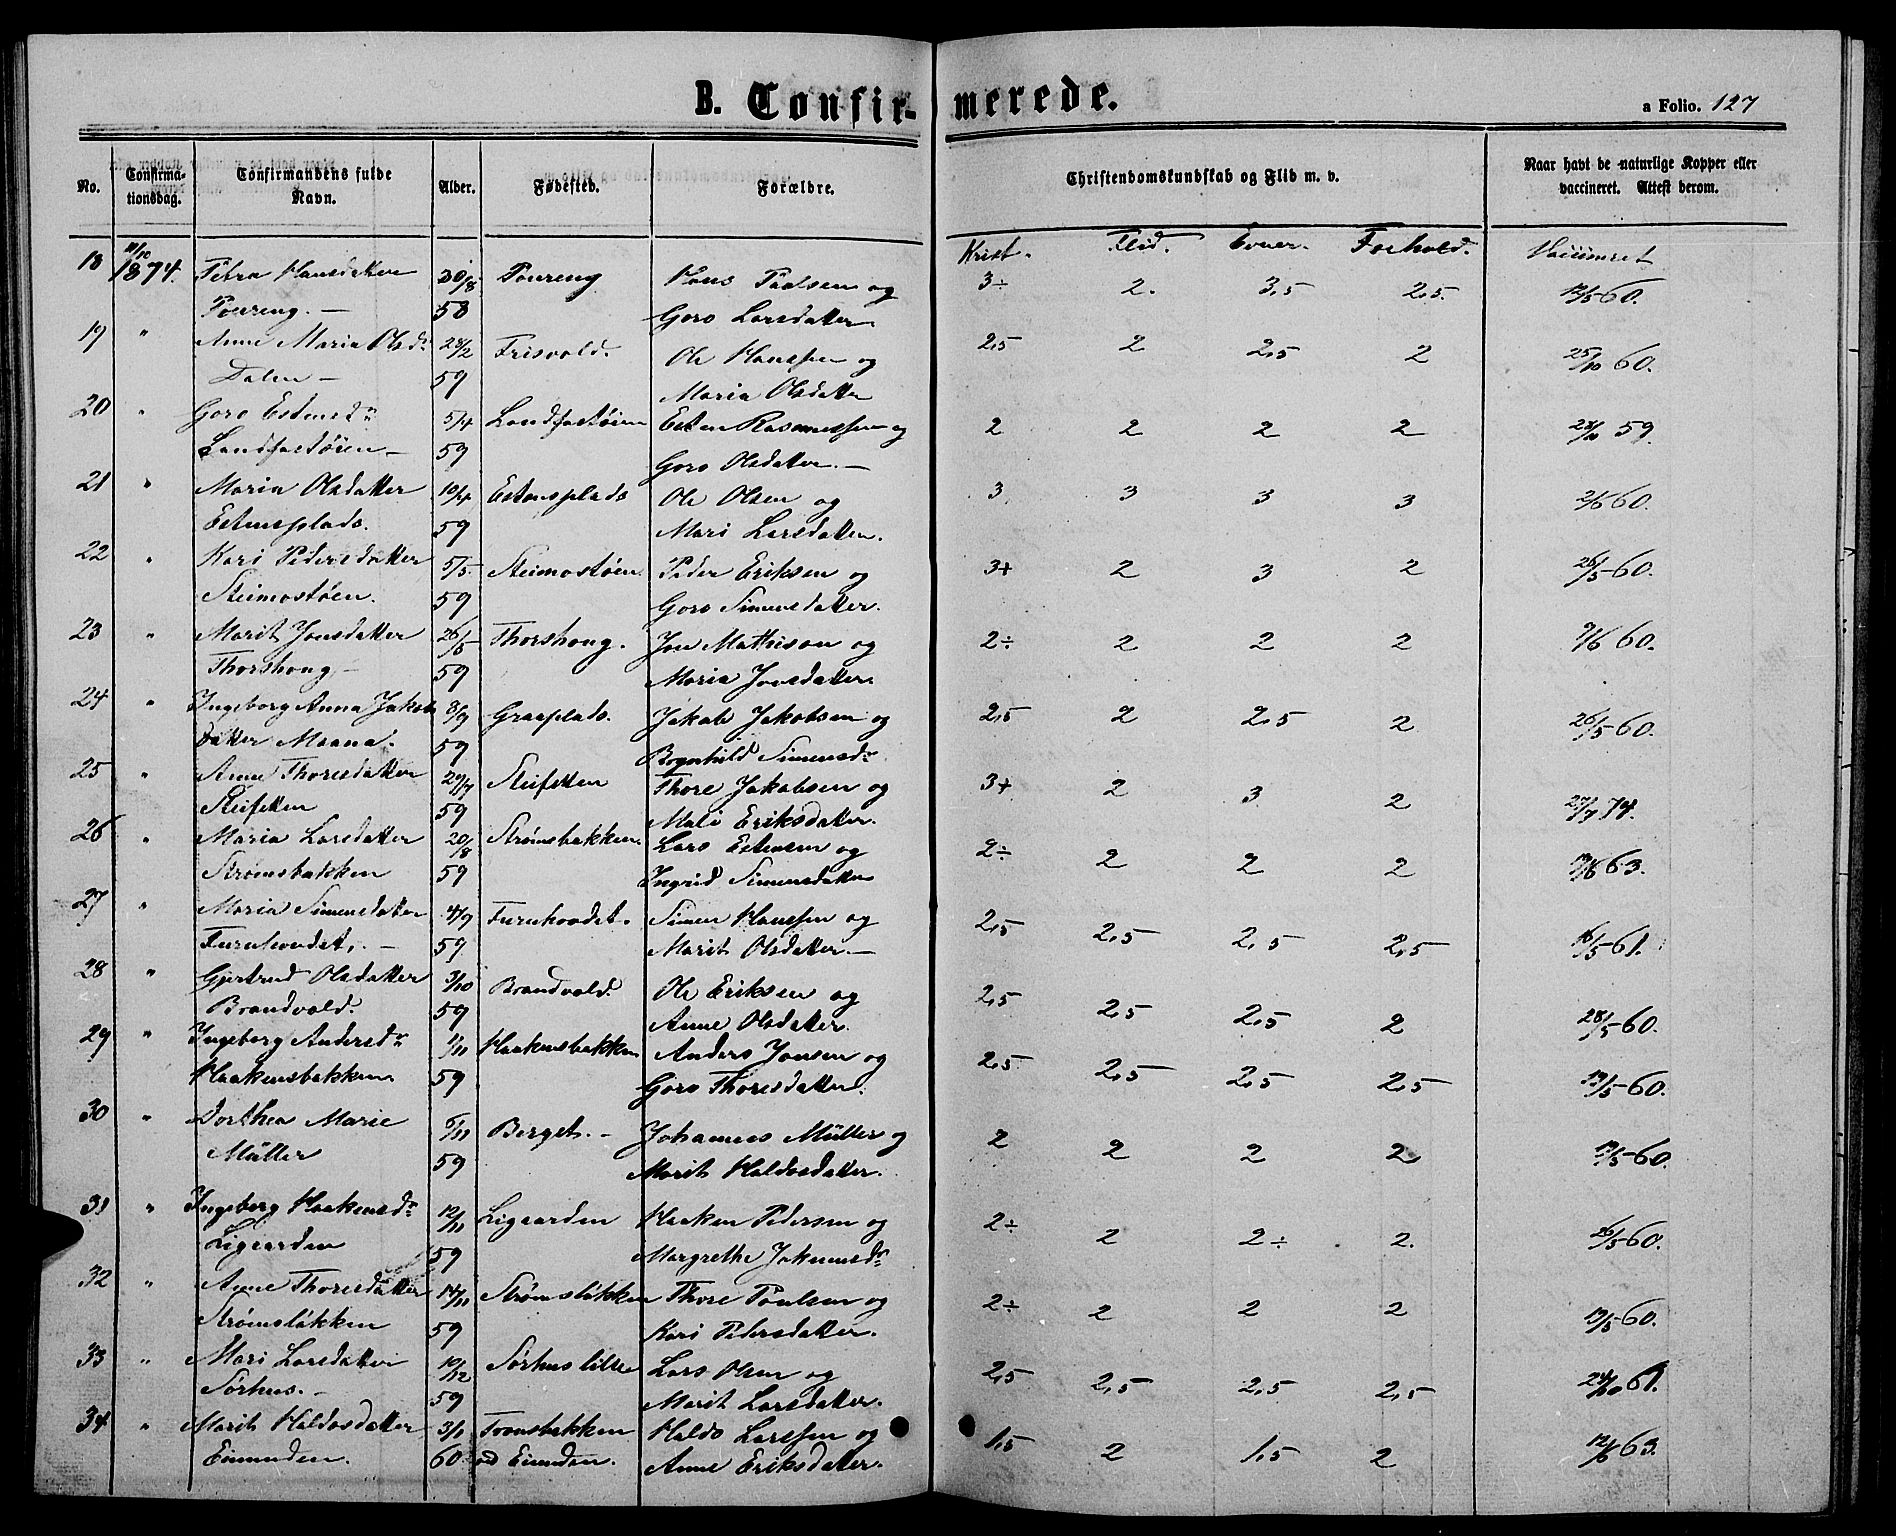 B. Confir-
merede.
a Folio. 127
No.
Confirma-
tionsdag.
Confirmandens fulde
Navn.
Alder.
Fødested.
Forældre.
Christendomskundskab og Flid m. v.
Naar havt de naturlige Kopper eller
vaccineret. Attest derom.
Krist. Flid. Evner. Forhold. Vaccineret
18 11/10 1874. Petra Hansdatter 30/8 Poureng Hans Paulsen og 3÷ 2. 3,5 2,5. 12/5 60.
Poureng. — 58 Goro Larsdatter
19 " Anne Maria Olsdr 28/2 Frisvold. Ole Hanssen og 2,5 2 2,5 2 25/10 60.
Dalen — 59 Maria Olsdatter
20 " Goro Estensdr 5/4 Landfastøien Esten Rasmussen og 2 2 2 2 28/10 59.
Landfastøien — 59 Goro Olsdatter. —
21 " Maria Olsdatter 10/4 Estensplads Ole Olsen og 3 3 3 3 2/6 60.
Estensplads. 59 Mari Larsdatter.
22 " Kari Pedersdatter 5/5 Steimostøen Peder Eriksen og 3+ 2 3 2 26/5 60.
Steimostøen. 59 Goro Simensdatter.
23 " Marit Jonsdatter 26/5 Thorshoug. Jon Mathison og 2÷ 2 2 2 9/6 60.
Thorshoug — 59 Maria Jonsdatter
24 " Ingeborg Anna Jakobs 8/9 Graaplads. Jakob Jakobsen og 2,5 2 2,5 2 26/5 60.
datter Moana. 59 Ragnhild Simensdr
25 " Anne Thoresdatter 29/7 Steifetten Thore Jakobsen og 3+ 2 3 2 27/7 74.
Steifetten 59 Mali Eriksdatter.
26 " Maria Larsdatter 20/8 Strømsbakken. Lars Estensen og 2÷ 2 2 2 19/6 63.
Strømsbakken 59 Ingrid Simensdatter
27 " Maria Simensdatter 4/9 Furuhovdet. Simen Hanssen og 2,5 2,5 2,5 2,5 16/5 61.
Furuhovdet. — 59. Marit Olsdatter —
28 " Gjertrud Olsdatter 3/10 Brandvold. Ole Eriksen og 2,5 2,5 2,5 2 28/5 60.
Brandvold. 59 Anne Olsdatter.
29 " Ingeborg Andersdr 1/11 Haakensbakken Anders Jonsen og 2,5 2,5 2,5 2,5 19/5 60.
Haakensbakken 59 Goro Thoresdatter.
30 " Dorthea Marie 6/11 Berget. — Johannes Müller og 2 2 2 2 19/5 60.
Müller 59 Marit Haldosdatter.
31 " Ingeberg Haakensdr 12/11 Ligaarden Haaken Pedersen og 2÷ 2 2÷ 2. 26/5 60.
Ligaarden 59 Margrethe Johannesdr
32 " Anne Thoresdatter 14/11 Strømsløkken Thore Poulsen og 2÷ 2 2 2 19/5 60.
Strømsløkken 59 Kari Pedersdatter.
33 " Mari Larsdatter 10/12 Sørhus lille Lars Olsen og 2,5 2,5 2,5 2,5 24/10 61.
Sørhus. — 59 Marit Larsdatter.
34 " Marit Haldosdatter 3/1 Tronsbakken Haldo Larssen og 1,5 2 1,5 2 12/6 63.
Eimunden. 60 ved Eimunden. Anne Eriksdatter.